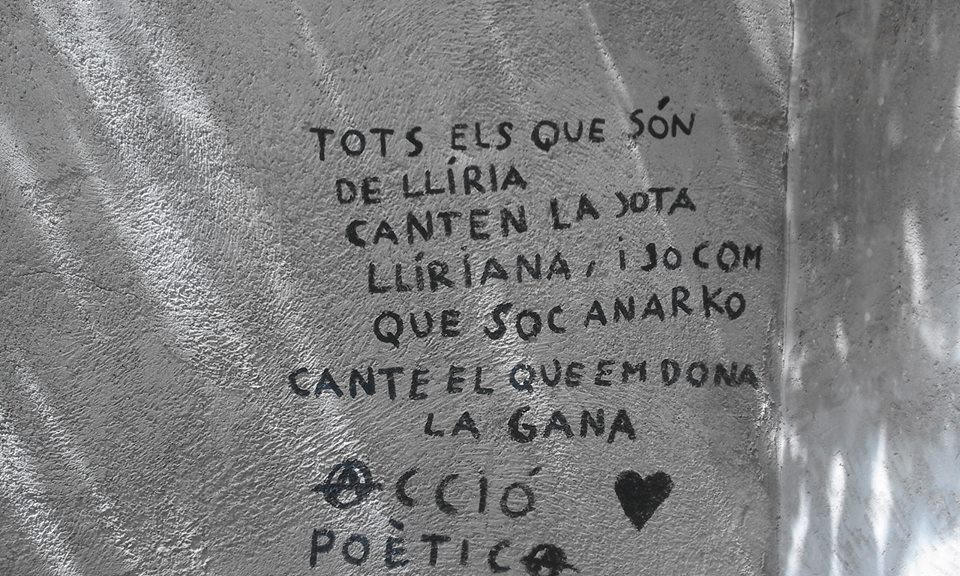 TOTS ELS QUE SÓN
DE LLÍRIA
CANTEN LA JOTA
LLÍRIANA, I JO COM
QUE SOC ANARKO
CANTE EL QUE EM DONA
LA GANA
ACCIÓ
POÈTICA